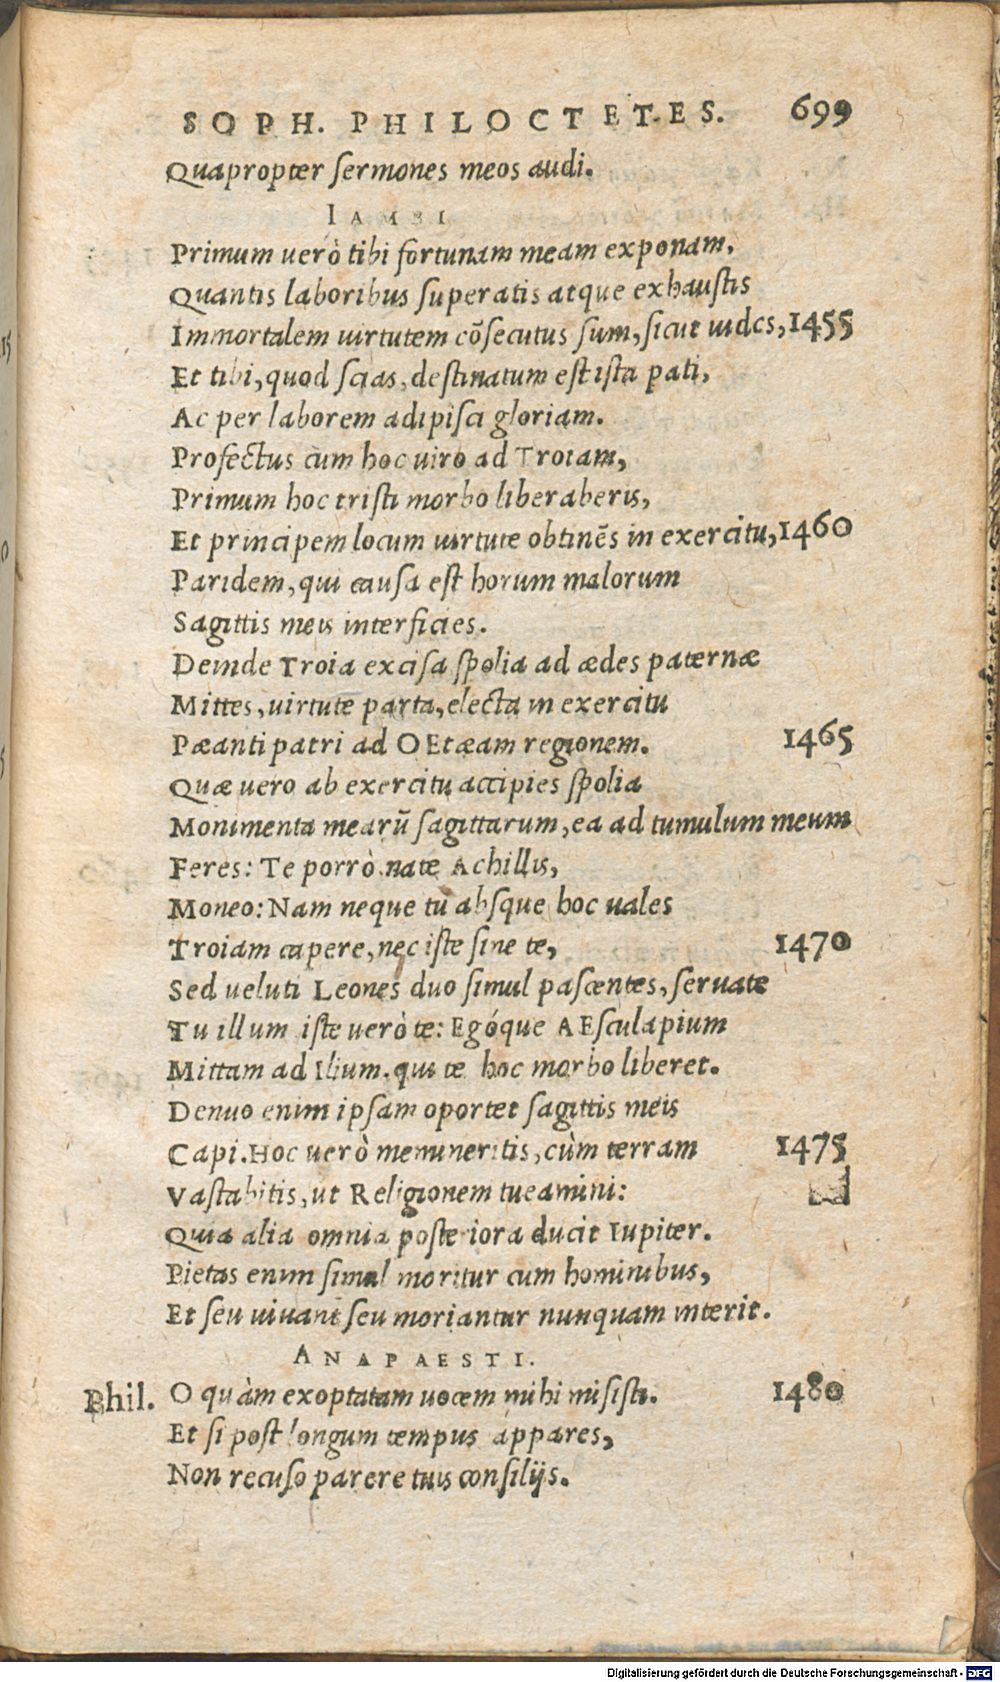 SOPH. PHILOCTETES. 699
Quapropter sermones meos audi.
IAMBI
Primum verò tibi fortunam meam exponam,
Quantis laboribus superatis atque exhaustis
Immortalem uirtutem cõsecutus sum, sicut uides, 1455
Et tibi, quod scias, destinatum est ista pati,
Ac per laborem adipisci gloriam.
Profectus cum hoc uiro ad Troiam,
Primum hoc tristi morbo liberaberis,
Et principem locum uirtute obtinẽs in exercitu, 1460
Paridem, qui causa est horum malorum
Sagittis meis interficies.
Deinde Troia excisa spolia ad ædes paternæ
Mittes, uirtute parta, electa in exercitu
Pæanti patri ad OEtæam regionem. 1465
Quæ uero ab exercitu accipies spolia
Monimenta mearũ sagittarum, ea ad tumulum meum
Feres: Te porrò nate Achillis,
Moneo: Nam neque tu absque hoc uales
Troiam capere, nec iste sine te, 1470
Sed ueluti Leones duo simul pascentes, seruate
Tu illum iste uerò te: Egóque AEsculapium
Mittam ad Ilium. qui te hoc morbo liberet.
Denuo enim ipsam oportet sagittis meis
Capi. Hoc uerò memineritis, cùm terram 1475
Vastabitis, ut Religionem tueamini:
Quia alia omnia posteriora ducit Iupiter.
Pietas enim simul moritur cum hominibus,
Et seu uiuant seu moriantur nunquam interit.
ANAPAESTI.
Phil. O quàm exoptatam uocem mihi misisti. 1480
Et si post longum tempus appares,
Non recuso parere tuis consilijs.
Digitalisierung gefördert durch die Deutsche Forschungsgemeinschaft - DFG